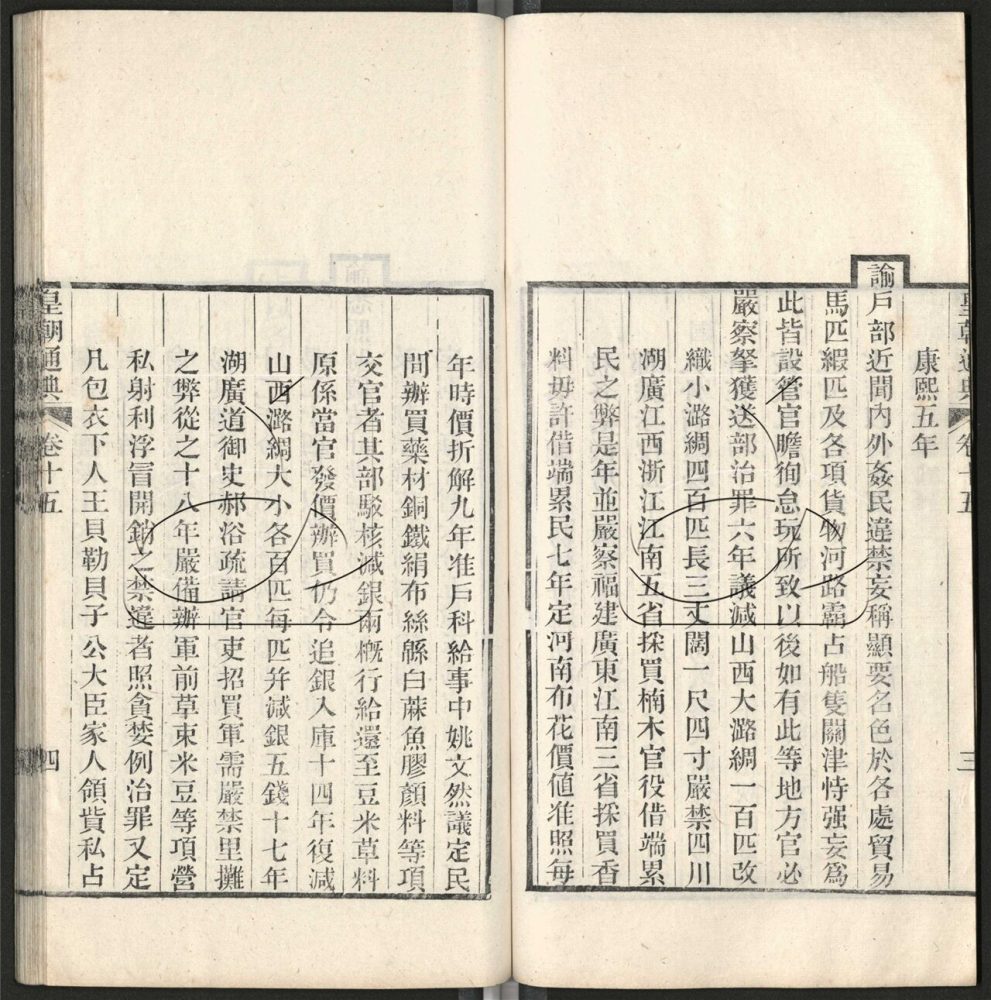 皇朝通典 卷十五 三
康熙五年
諭戸部近聞內外姦民違禁妄稱顯要名色於各處貿易
馬匹緞匹及各項貨物河路霸占船隻關津恃强妄爲
此皆設管官瞻徇怠玩所致以後如有此等地方官必
嚴察拏獲送部治罪六年議減山西大潞綢一百匹改
織小潞綢四百匹長三丈闊一尺四寸嚴禁四川
湖廣江西浙江江南五省採買楠木官役借端累
民之弊是年並嚴察福建廣東江南三省採買香
料毋許借端累民七年定河南布花價値准照每
年時價折解九年准戸科給事中姚文然議定民
間辦買藥材銅鐵絹布絲緜白蔴魚膠顏料等項
交官者其部駁核減銀兩槪行給還至豆米草料
原係當官發價辦買仍令追銀入庫十四年復減
山西潞綢大小各百匹每匹幷減銀五錢十七年
湖廣道御史郝浴疏請官吏招買軍需嚴禁里攤
之弊從之十八年嚴備辦軍前草束米豆等項營
私射利浮冒開銷之禁違者照貪婪例治罪又定
凡包衣下人王貝勒貝子公大臣家人領貲私占
皇朝通典 卷十五 四